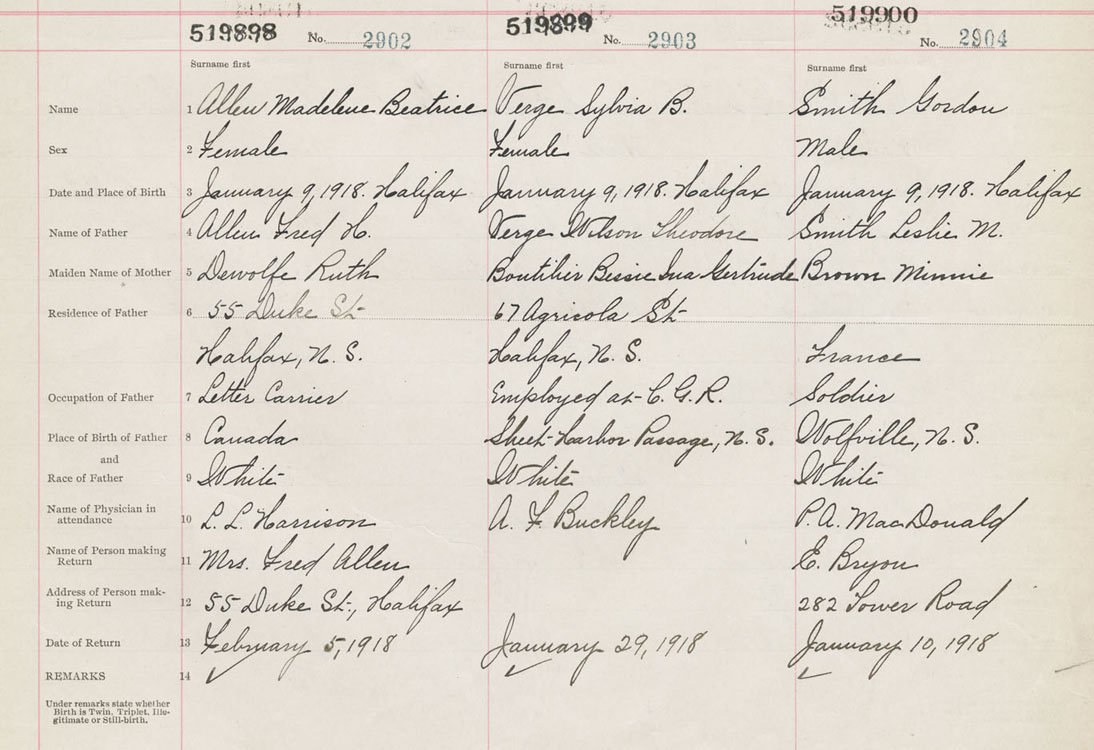 519898 No. 2902 519899 No. 2903 519900 No. 2904
Surname first Surname first Surname first
Name 1 Allen Madelene Beatrice Verge Sylvia B. Smith Gordon
Sex 2 Female Female Male
Date and Place of Birth 3 January 9, 1918. Halifax January 9, 1918. Halifax January 9, 1918. Halifax
Name of Father 4 Allen Fred H. Verge Wilson Theodore Smith Leslie M.
Maiden Name of Mother 5 Dewolfe Ruth Boutilier Bessie Ina Gertrude Brown Minnie
Residence of Father 6 55 Duke St. 67 Agricola St.
Halifax, N. S. Halifax, N. S. France
Occupation of Father 7 Letter Carrier Employed at C. G. R. Soldier
Place of Birth of Father 8 Canada Sheet Harbor Passage, N. S. Wolfville, N. S.
and
Race of Father 9 White White White
Name of Physician in
attendance 10 L. L. Harrison A. F. Buckley P. A. MacDonald
Name of Person making
Return 11 Mrs. Fred Allen E. Bryon
Address of Person mak-
ing Return 12 55 Duke St., Halifax 282 Tower Road
Date of Return 13 February 5, 1918 January 29, 1918 January 10, 1918
REMARKS 14 ✓ ✓ ✓
Under remarks state whether
Birth is Twin, Triplet, Ille-
gitimate or Still-birth.